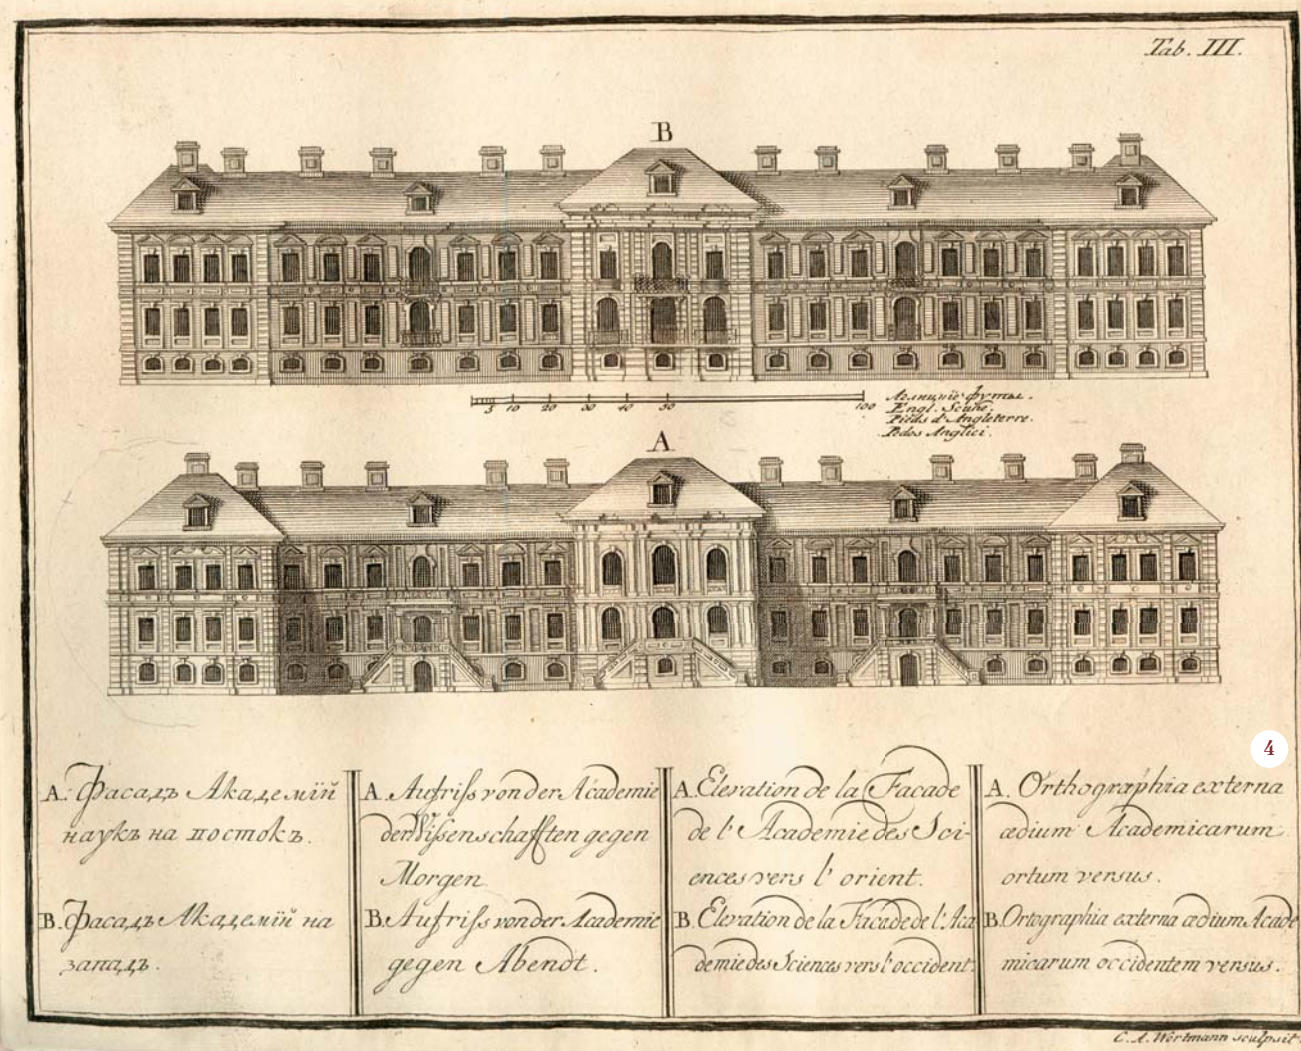 Tab. III.
B
5 10 20 30 40 50 100
Аглицкïе футы.
Engl. Schue.
Pieds d'Angleterre.
Pedes Anglici.
A
4
A. Фасадъ Академïй
наукъ на востокъ.
B. Фасадъ Академïй на
западъ.
A. Aufriss von der Academie
der Wissenschafften gegen
Morgen
B. Aufriss von der Academie
gegen Abendt.
A. Elevation de la Facade
de l'Academie des Sci-
ences vers l'orient.
B. Elevation de la Facade de l'Aca
demie des Sciences vers l'occident.
A. Orthographia externa
ædium Academicarum
ortum versus.
B. Ortographia externa ædium Acade
micarum occidentem versus.
C. A. Wortmann sculpsit.